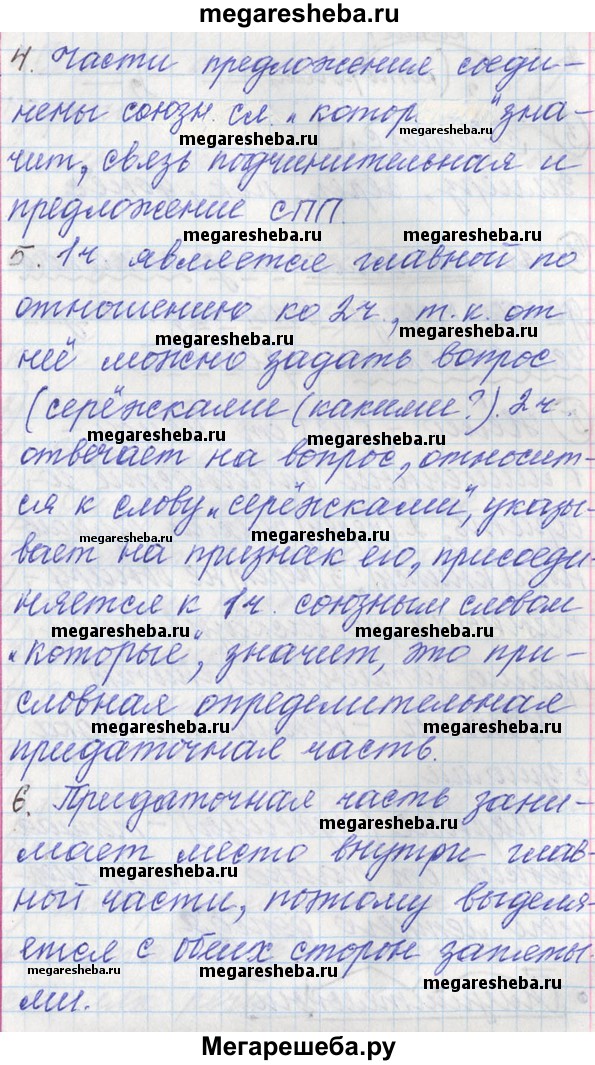 megaresheba.ru
4. Части предложения соеди-
нены союзн. сл. „котор. " зна-
megaresheba.ru megaresheba.ru
чит, связь подчинительная и
предложение СПП.
megaresheba.ru megaresheba.ru
5. 1ч. является главной по
отношению ко 2ч., т.к. от
megaresheba.ru megaresheba.ru
неё можно задать вопрос
(серёжками (какими?). 2ч.
megaresheba.ru megaresheba.ru
отвечает на вопрос, относит-
ся к слову „серёжками", указы-
megaresheba.ru megaresheba.ru
вает на признак его, присоеди-
няется к 1ч. союзным словом
megaresheba.ru megaresheba.ru
„которые", значит, это при-
словная определительная
megaresheba.ru megaresheba.ru
придаточная часть.
6. Придаточная часть зани-
megaresheba.ru
мает место внутри глав-
ной части, поэтому выделя-
ется с обеих сторон запяты-
megaresheba.ru megaresheba.ru megaresheba.ru
ми.
Мегарешеба.ру